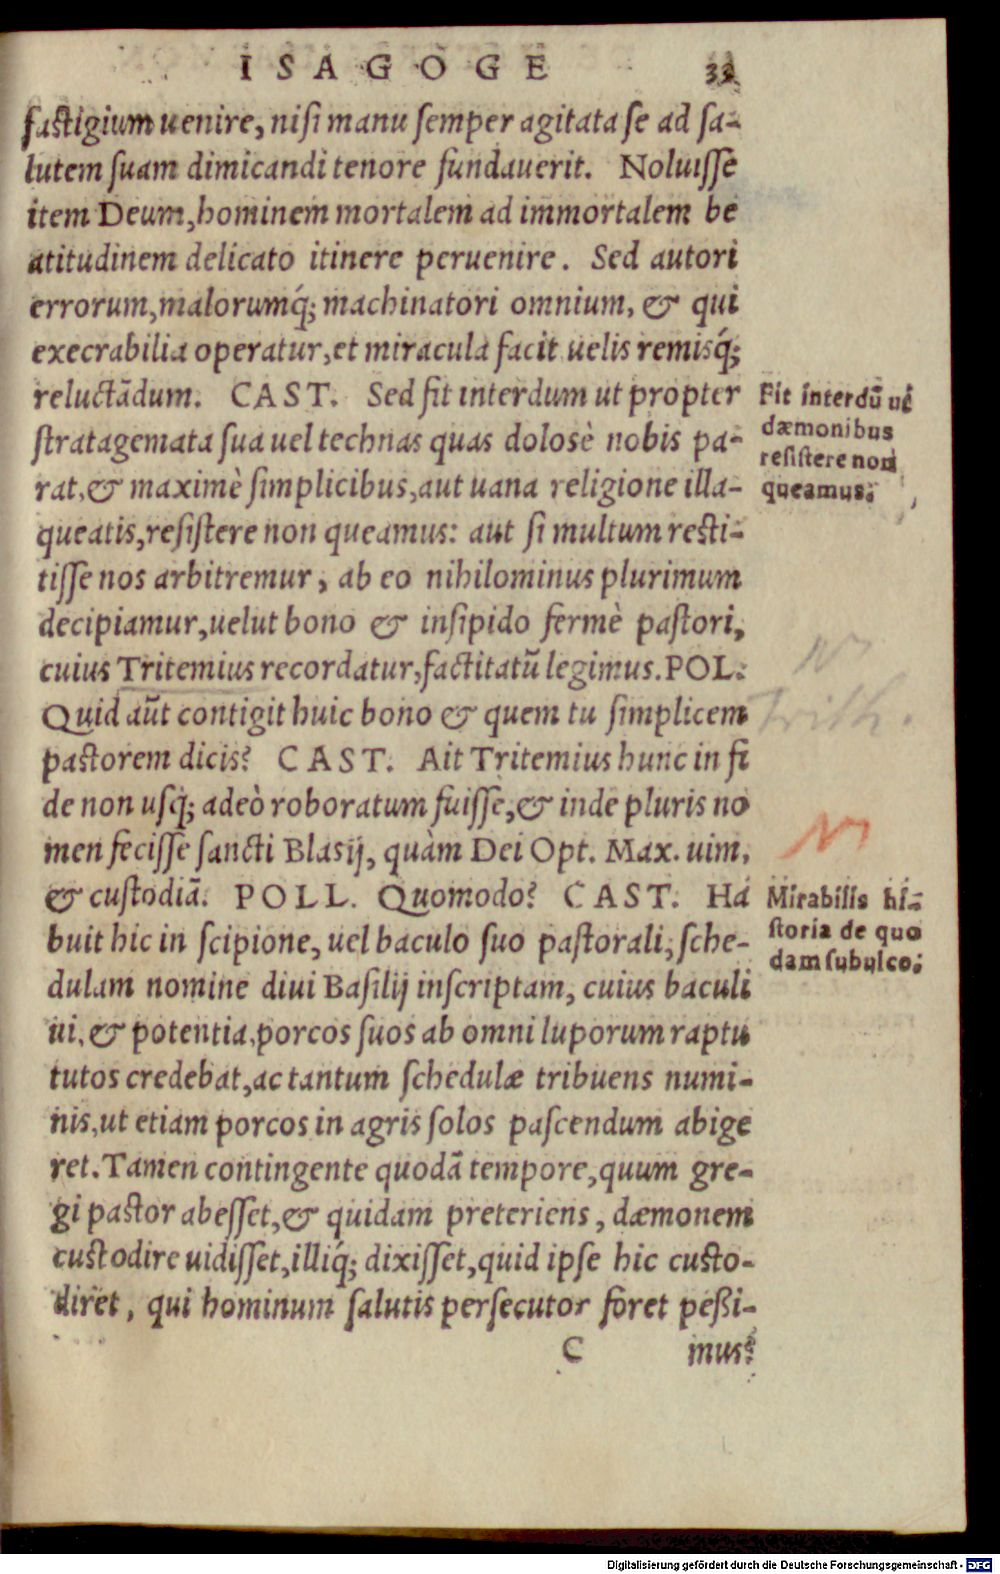 ISAGOGE 33
fastigium uenire, nisi manu semper agitata se ad sa-
lutem suam dimicandi tenore fundauerit. Noluisse
item Deum, hominem mortalem ad immortalem be
atitudinem delicato itinere peruenire. Sed autori
errorum, malorumq́; machinatori omnium, & qui
execrabilia operatur, et miracula facit uelis remisq́;
reluctãdum. CAST. Sed fit interdum ut propter
stratagemata sua uel technas quas dolosè nobis pa-
rat, & maximè simplicibus, aut uana religione illa-
queatis, resistere non queamus: aut si multum resti-
tisse nos arbitremur, ab eo nihilominus plurimum
decipiamur, uelut bono & insipido fermè pastori,
cuius Tritemius recordatur, factitatũ legimus. POL.
Quid aũt contigit huic bono & quem tu simplicem
pastorem dicis? CAST. Ait Tritemius hunc in fi
de non usq́; adeò roboratum fuisse, & inde pluris no
men fecisse sancti Blasij, quàm Dei Opt. Max. uim,
& custodiã. POLL. Quomodo? CAST. Ha
buit hic in scipione, uel baculo suo pastorali, sche-
dulam nomine diui Basilij inscriptam, cuius baculi
ui, & potentia, porcos suos ab omni luporum raptu
tutos credebat, ac tantum schedulæ tribuens numi-
nis, ut etiam porcos in agris solos pascendum abige
ret. Tamen contingente quodã tempore, quum gre-
gi pastor abesset, & quidam preteriens, dæmonem
custodire uidisset, illiq́; dixisset, quid ipse hic custo-
diret, qui hominum salutis persecutor foret peßi-
C mus?
Fit interdũ ut
dæmonibus
resistere non
queamus.
N
Trith.
N
Mirabilis hi-
storia de quo
dam subulco.
Digitalisierung gefördert durch die Deutsche Forschungsgemeinschaft - DFG